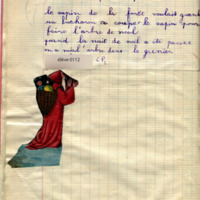 le sapin de la forêt voulait grandir
un bucheron a coupé le sapin pour
faire l'arbre de noël
quand la nuit de noël a été passée
on a mis l'arbre dans le grenier
élève 0112
CP